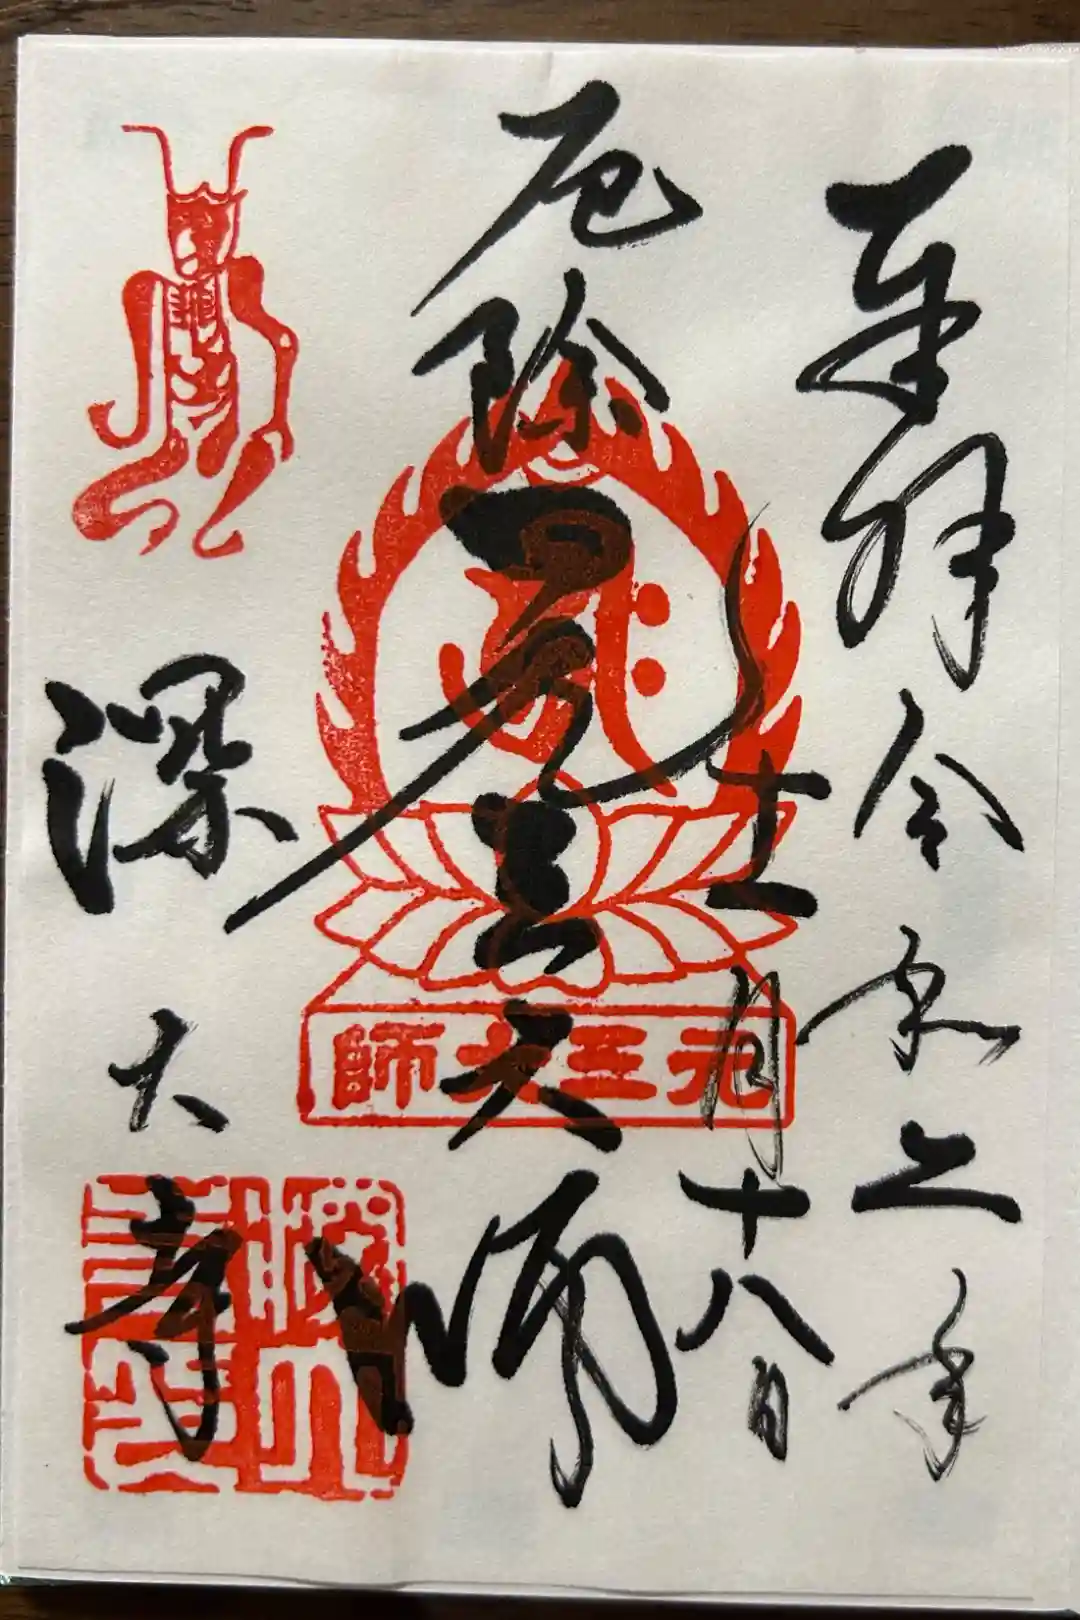 奉拝 令和二年
十一月十八日
厄除
元三大師
元三大師
深大寺